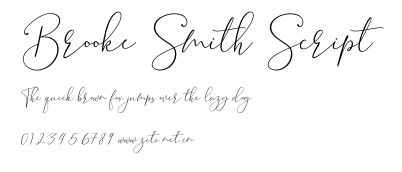 Brooke Smith Script
The quick brown fox jumps over the lazy dog
0123456789 www.zitinet.cn